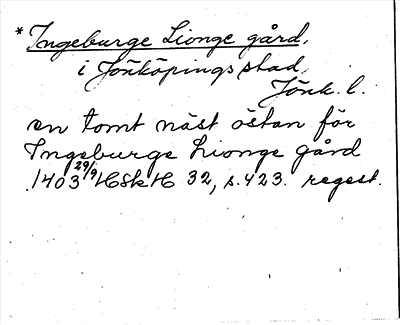 * Ingeburge Lionge gård,
i Jönköpings stad,
Jönk. l.
en tomt näst östan för
Ingeburge Lionge gård
1403 29/9 HSkH 32, s. 423. regest.